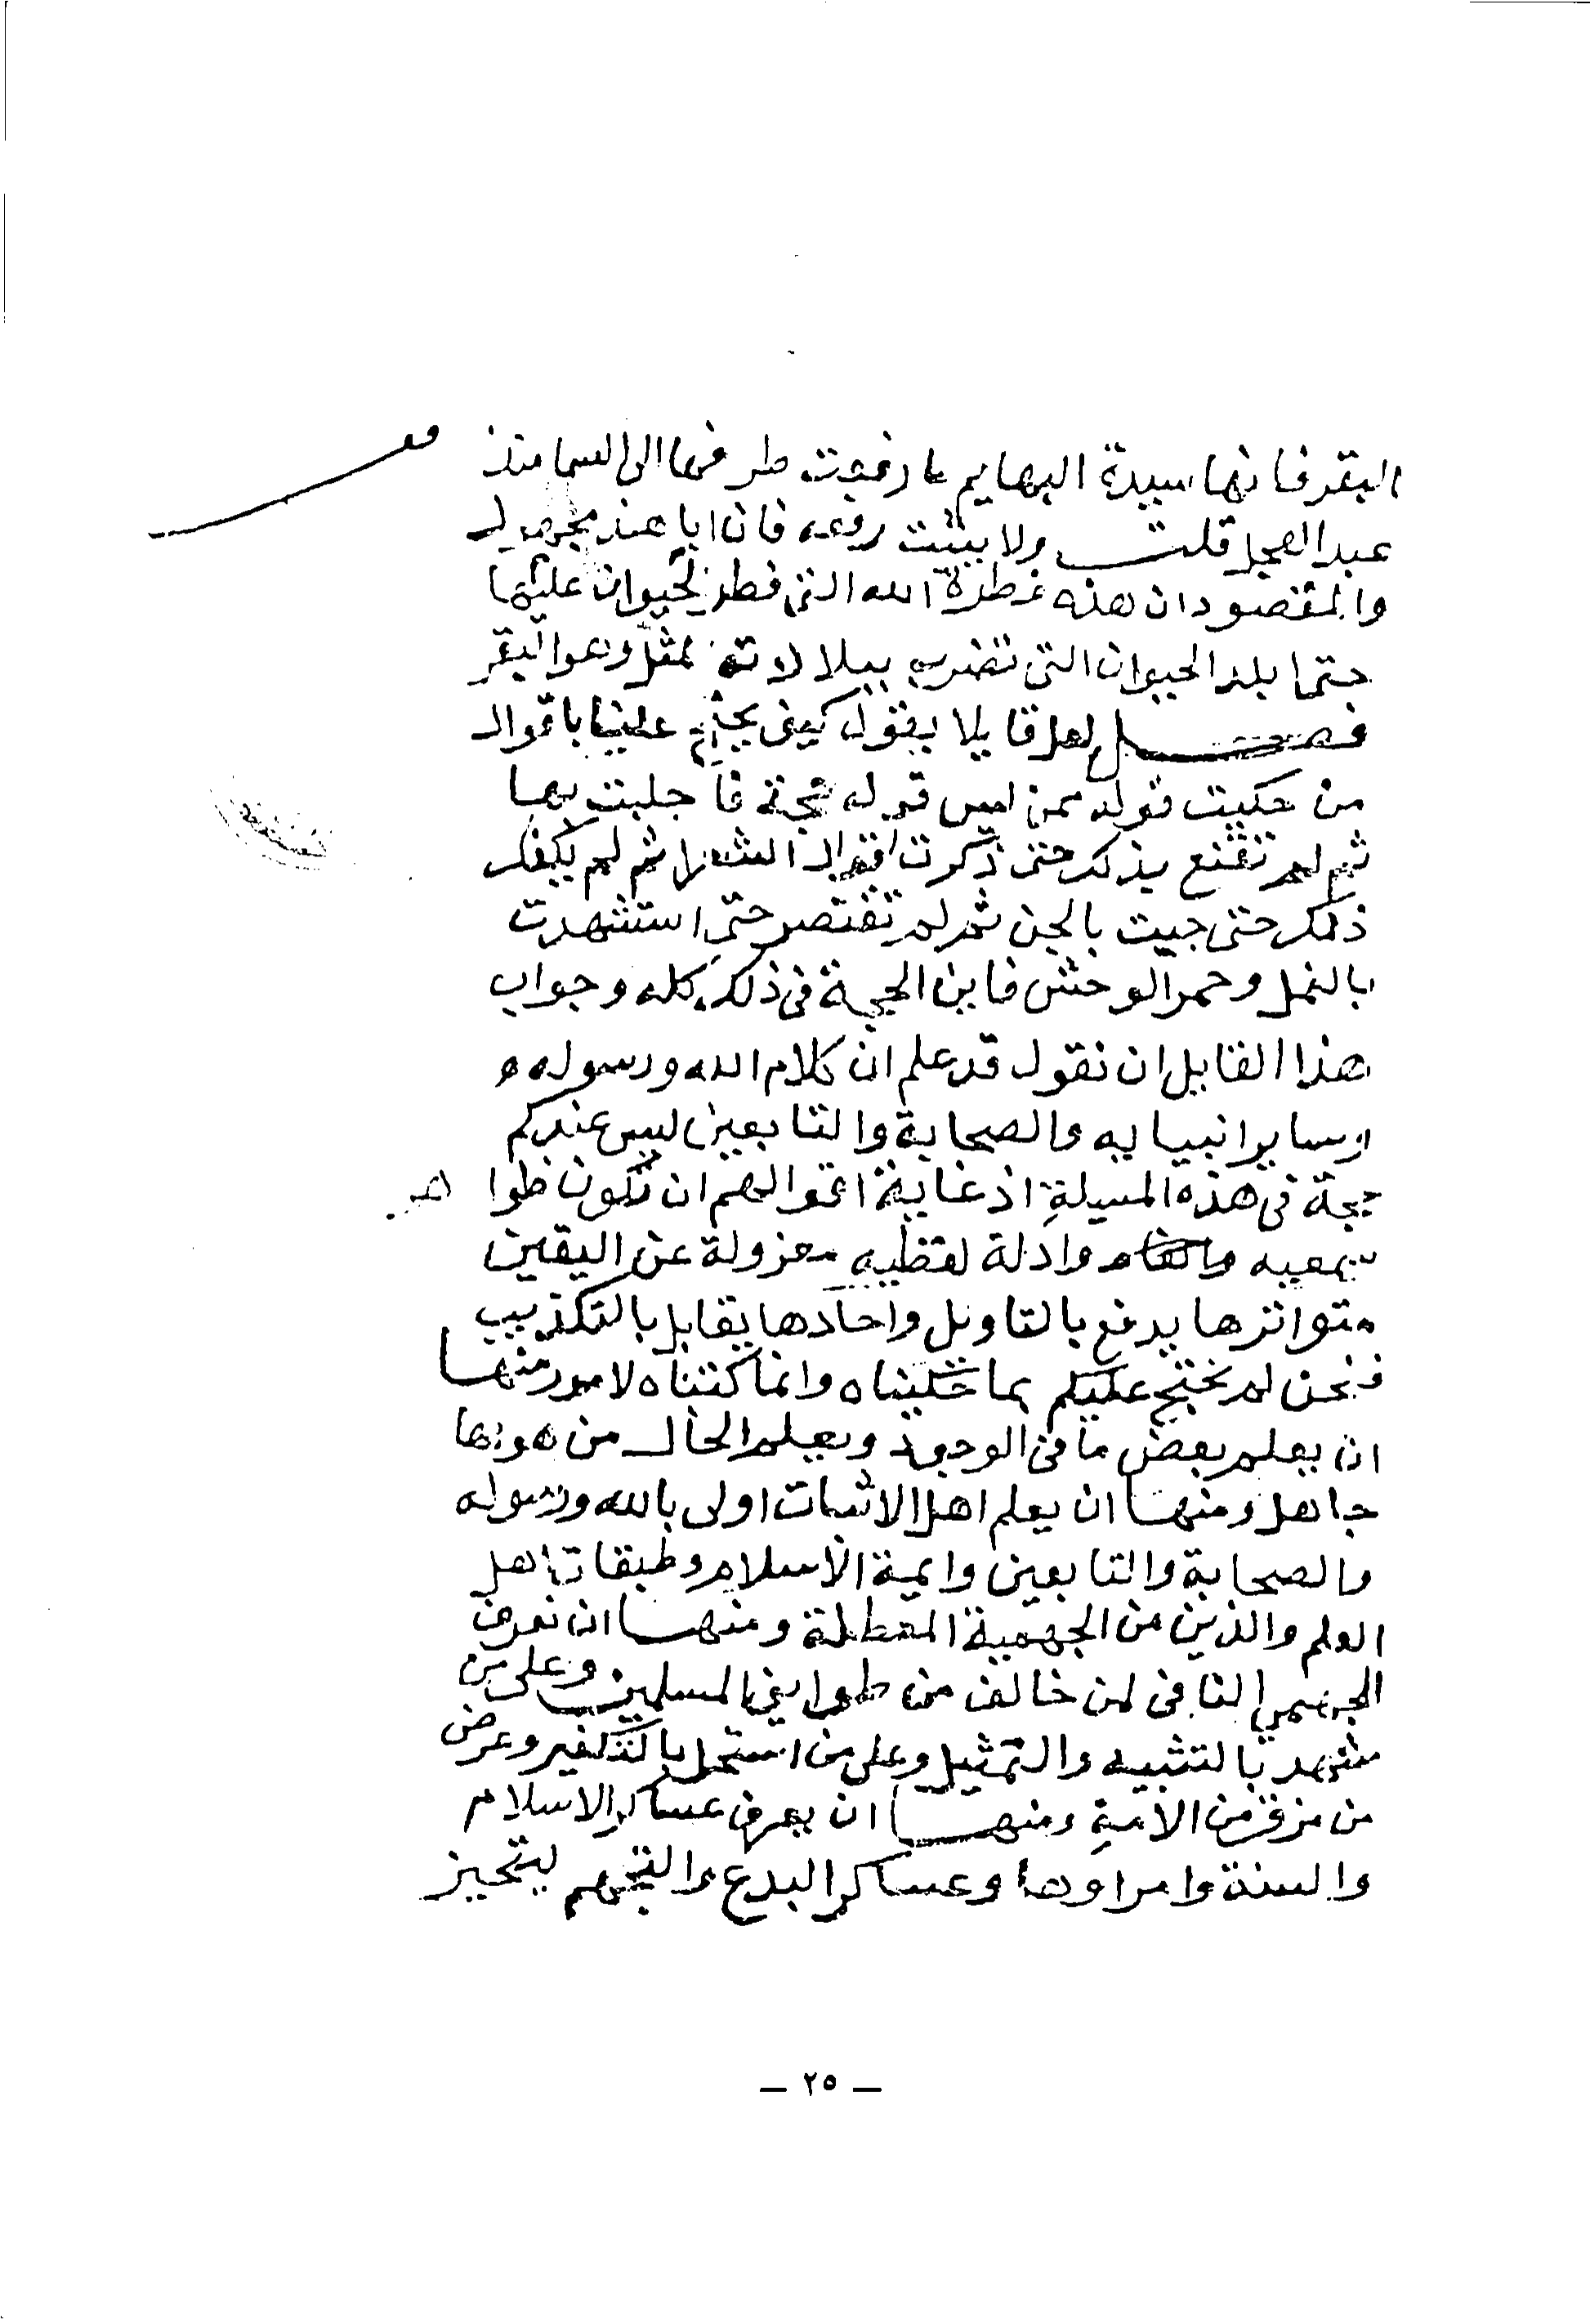 البقر فانها سيدة البهايم ما رفعت طرفها الى السما منذ
عبد العجل قلت ولا يثبت رفعه فان ابا هند مجهول
والمقصود ان هذه فطرة الله التي فطر الحيوان عليها
حتى ابلد الحيوان التي تضرب ببلادته المثل وهو البقر
فصل لعل قايلا يقول كيف يحتج علينا باقوال
من حكيت قوله ممن ليس قوله حجة فاجلبت بها
ثم لم تقنع بذلك حتى ذكرت اقوال الشعرا ثم لم يكفك
ذلك حتى جيت بالجن ثم لم تقتصر حتى استشهدت
بالنمل وحمر الوحش فاين الحجة في ذلك كله وجواب
هذا القايل ان نقول قد علم ان كلام الله ورسوله و
وساير انبيايه والصحابة والتابعين ليس عندكم
حجة في هذه المسيلة اذ غاية اقوالهم ان تكون ظواهر
سمعيه وادلة لفظيه معزولة عن اليقين
متواترها يدفع بالتاويل واحادها يقابل بالتكذيب
فنحن لم نحتج عليكم بما حكيناه وانما كتبناه لامور منها
ان يعلم بعض ما في الوجود ويعلم الحال من هو بها
جاهل ومنها ان يعلم اهل الاثبات اولى بالله ورسوله
والصحابة والتابعين وايمة الاسلام وطبقات اهل
العلم والدين من الجهمية المعطلة ومنها ان نعرف
الجهمي النافي لمن خالف من طوايف المسلمين وعلى من
شهد بالتشبيه والتمثيل وعلى من استحل بالتكفير وعرض
من مزق من الامة ومنها ان يعرف عساكر الاسلام
والسنة وامراوها وعساكر البدع والتجهم ليتحيز
– ٢٥ –